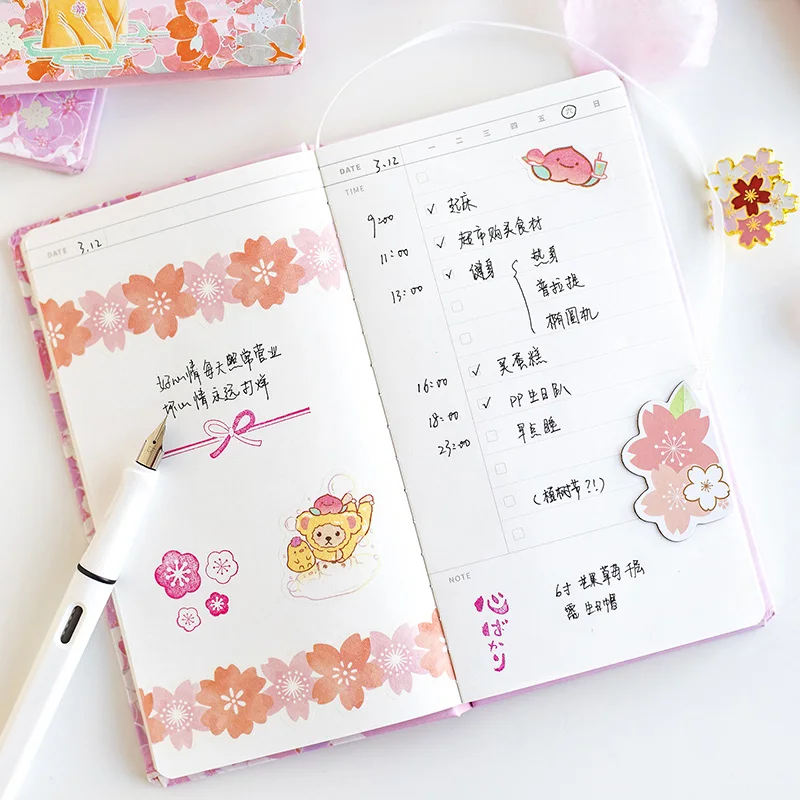 DATE 3.12
好心情每天照常营业
坏心情永远打烊
DATE 3.12
一 二 三 四 五 六 日
TIME
9:00 ✓ 起床
11:00 ✓ 超市购买食材
13:00 ✓ 健身 { 热身
普拉提
椭圆机
16:00 ✓ 买蛋糕
18:00 ✓ PP生日趴
23:00 早点睡
(植树节?!)
NOTE
心ばかり
6寸芒果草莓千层
需生日帽